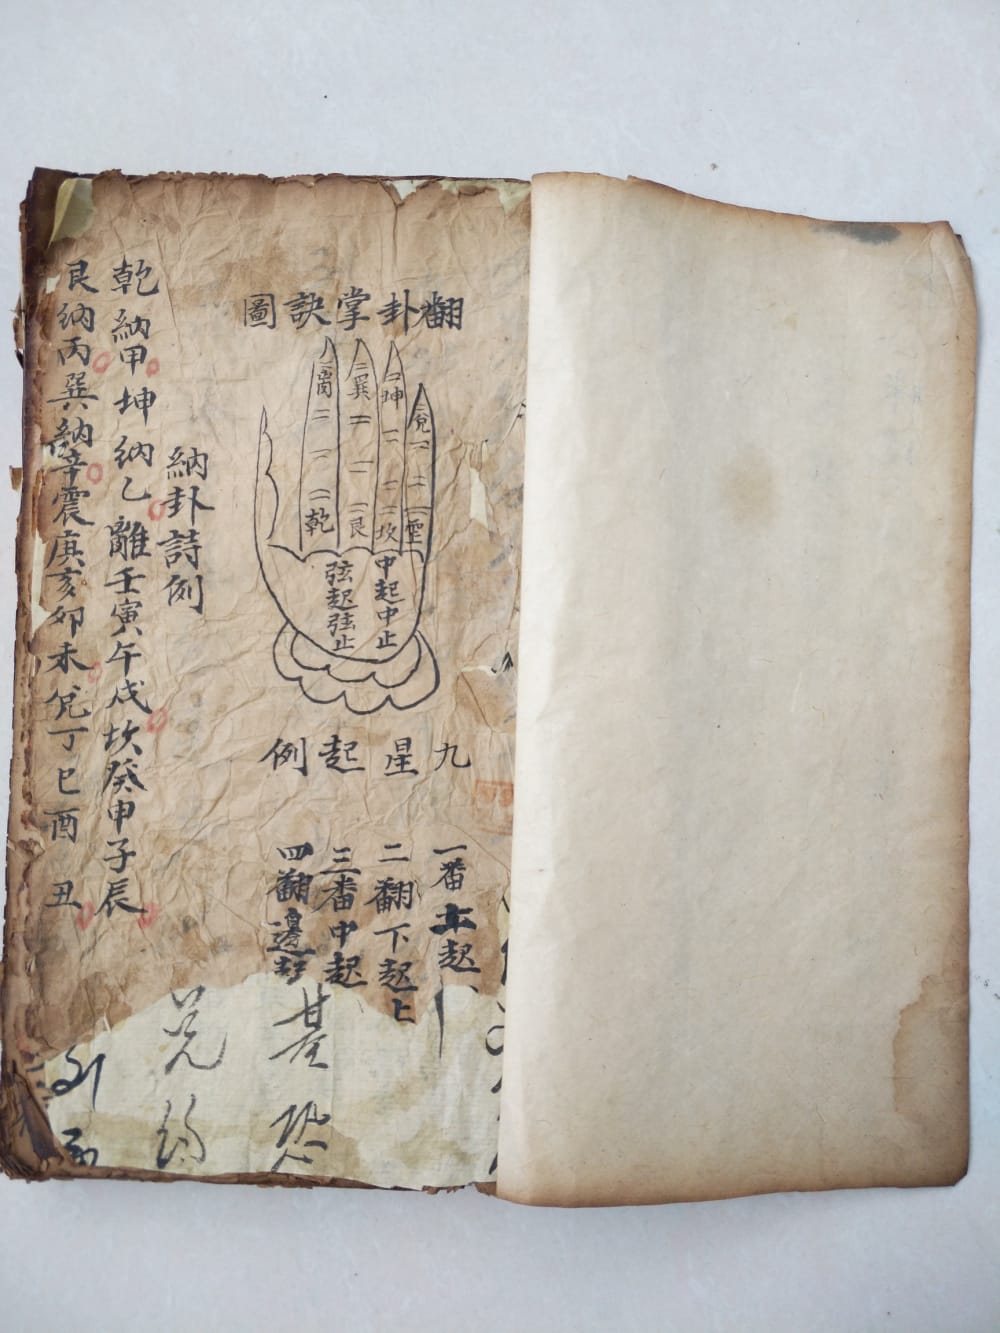 翻卦掌訣圖
離 巽 坤 兌
乾 艮 坎 震
中起中止
弦起弦止
九星起例
一番上起
二翻下起上
三番中起
四翻邊起
納卦詩例
乾納甲坤納乙離壬寅午戌坎癸申子辰
艮納丙巽納辛震庚亥卯未兌丁巳酉丑
基恐